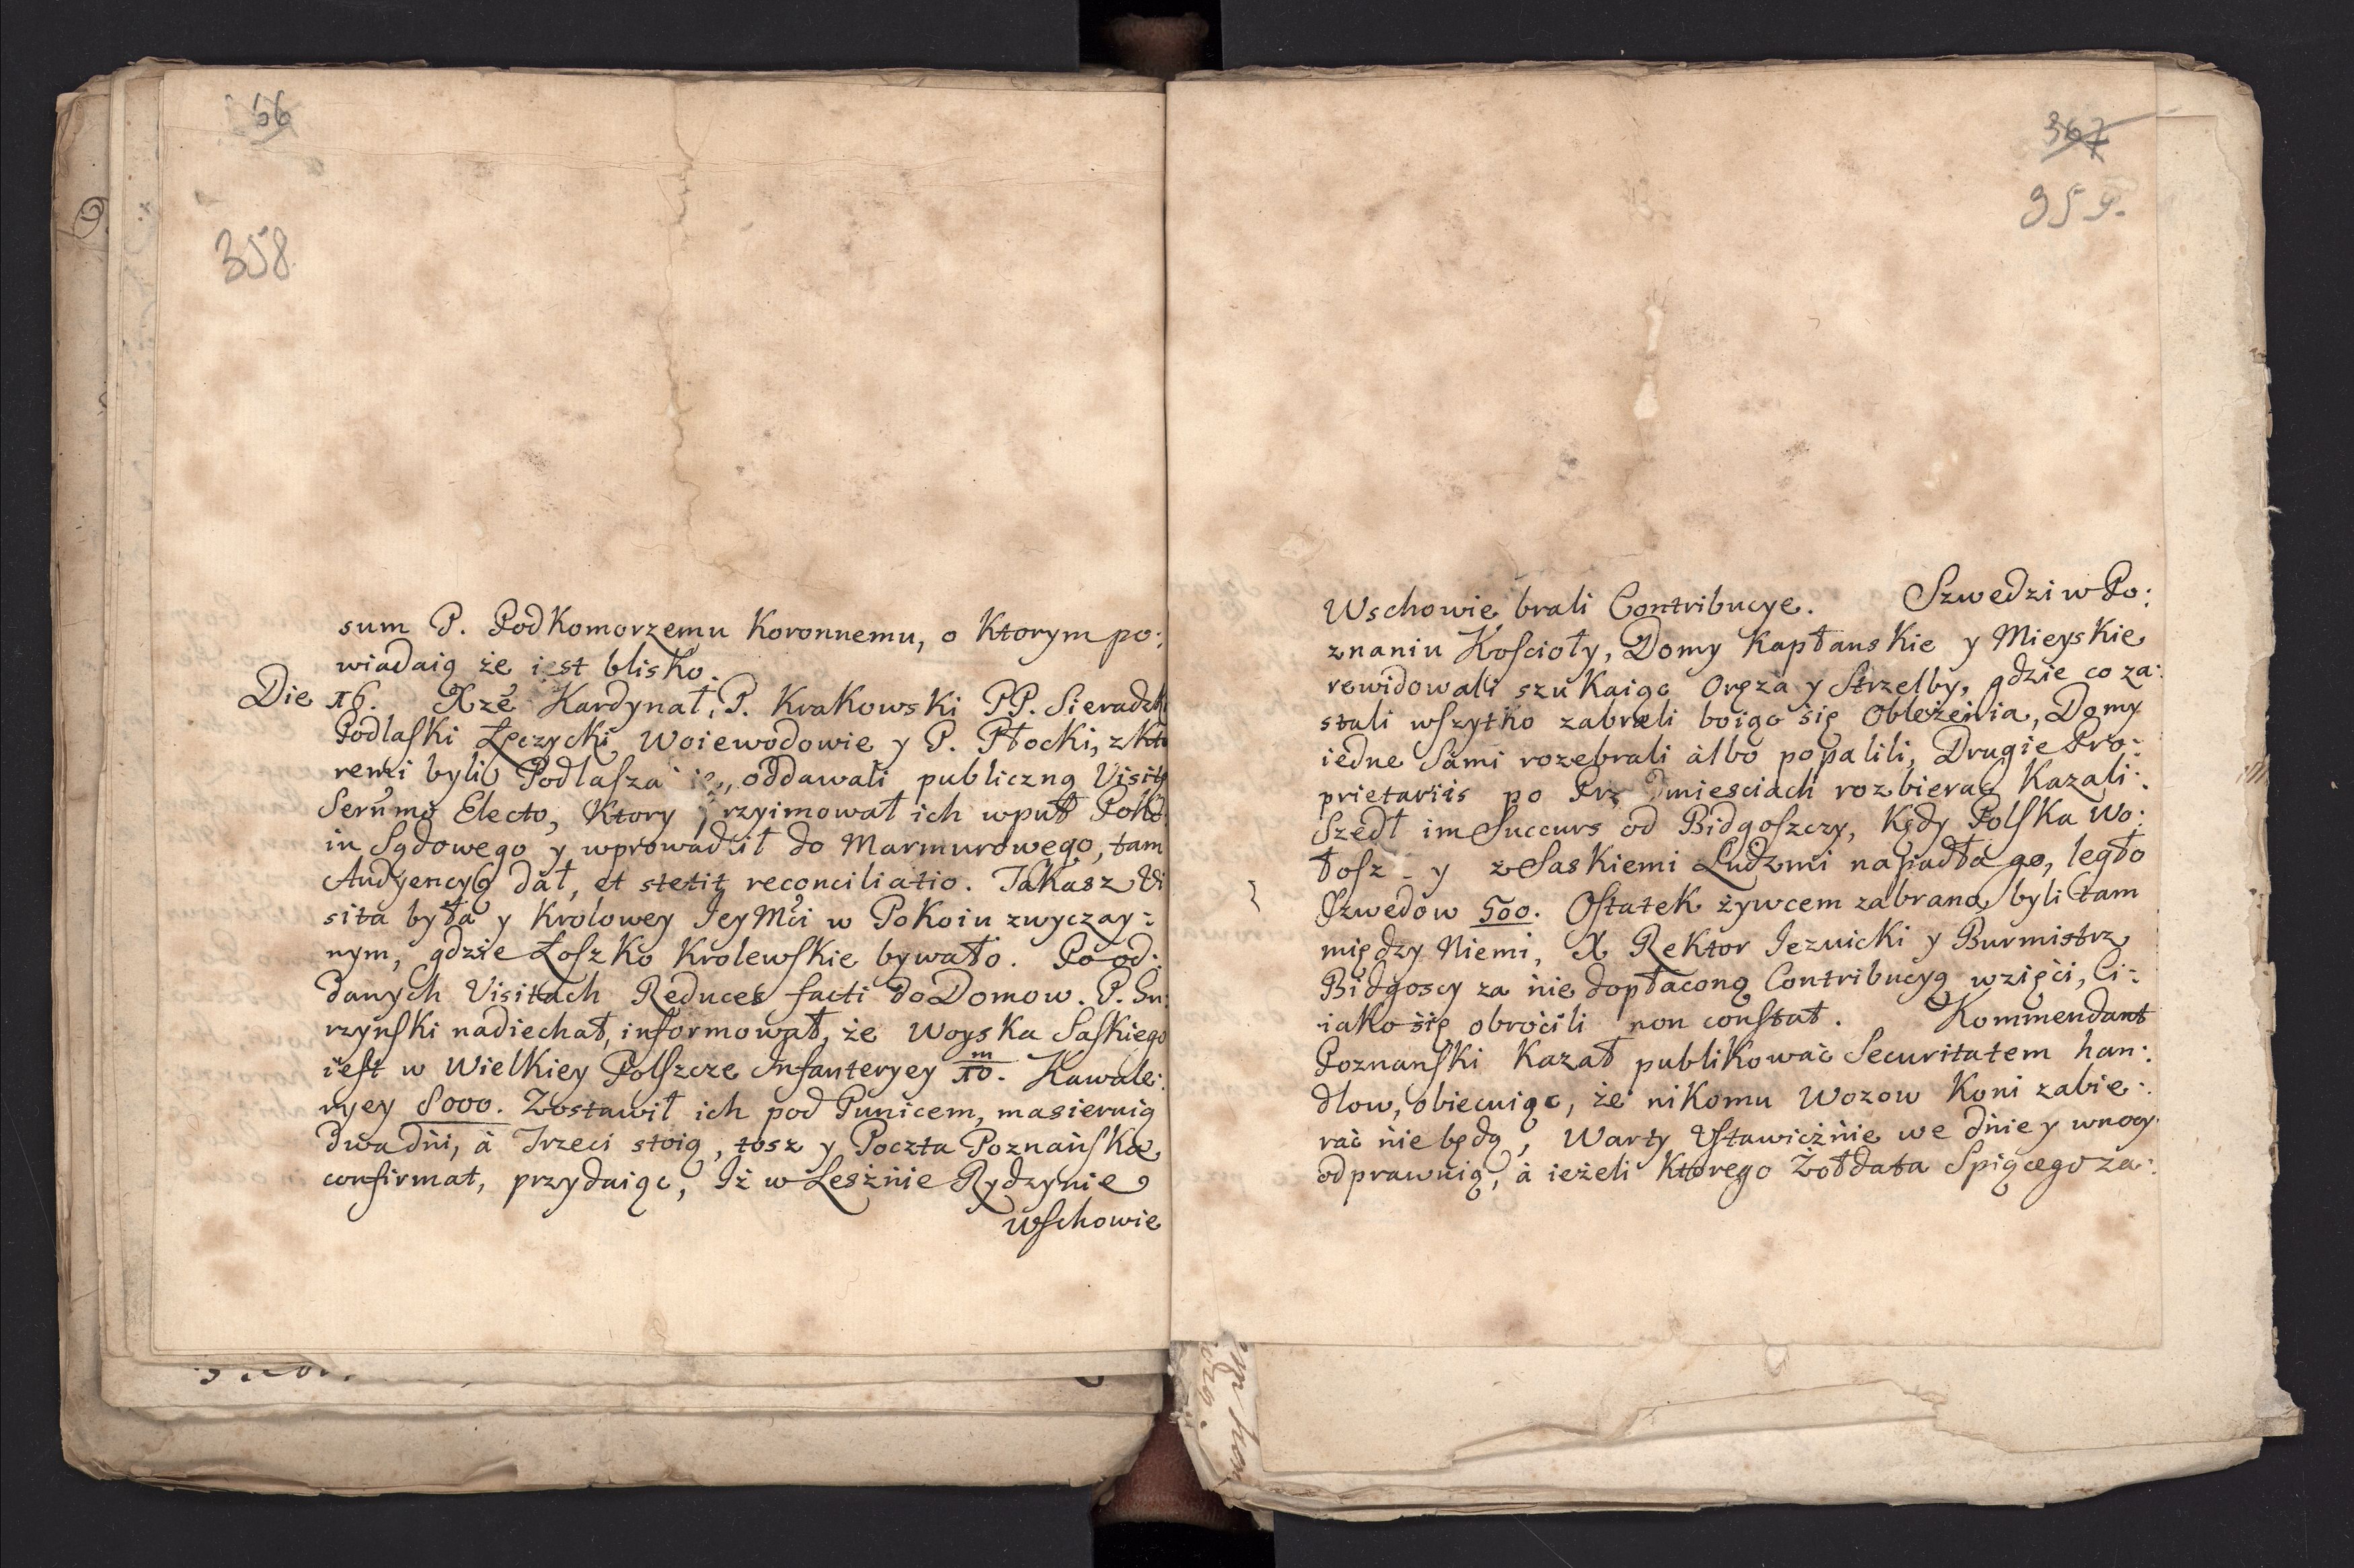 66
358
sum P. Podkomorzemu Koronnemu, o Ktorym po:
wiadaią że iest blisko.
Die 16. Xże Kardynał, P. Krakowski PP. Sieradzk
Podlaski Łęczycki, Woiewodowie y P. Płocki, z kto
remi byli Podlasza oddawali publiczną Visitę
Serñmo Electo, Ktory przyimował ich wpuł Poko
in Sądowego y wprowadził do Marmurowego, tam
Audyencyą dał, et stetit reconciliatio. Takasz Vi
sita była y Krolowey JeyMći w Pokoiu zwyczay:
nym, gdzie Łoszko Krolewskie bywało. Po od:
danych Visitach Reduces facti do Domow. P. Gu:
rzynski nadiechał, informował, że Woyska Saskiego
iest w Wielkiey Polszcze Infanteryey m/10. Kawale:
ryey 8000. Zostawił ich pod Punicem, masieruią
dwa dńi, á Trzeci stoią, tosz y Poczta Poznańska
confirmat, przydaiąc, Iż w Lesżnie Rydzynie
Wschowie
367
359.
Wschowie brali Contribucye. Szwedzi w Po:
znaniu Kościoły, Domy Kapłanskie y Mieyskie
rewidowali szukaiąc Oręża y Strzelby, gdzie co za:
stali wszytko zabrali boiąc się Oblężenia, Domy
iedne Sami rozebrali álbo popalili, Drugie Pro:
prietariis po Przedmiesciach rozbierać Kazali.
Szedł im Succurs od Bidgoszczy, Kędy Polska Wo:
łosz y z Saskiemi Ludzmi napadła go, legło
Szwedow 500. Ostatek żywcem zabrano, byli tam
między Niemi, X Rektor Jezuicki y Burmistrz
Bidgoscy za nie dopłaconą Contribucyą wzięci, Ci:
iako się obrócili non constat. Kommendant
Poznanski Kazał publikować Securitatem han:
dlow, obiecuiąc, że nikomu Wozow Koni zabie:
rać nie będą, Warty Ustawicżnie we dnie y wnocy
odprawuią, á ieżeli Ktorego Żołdata Spiącego za: